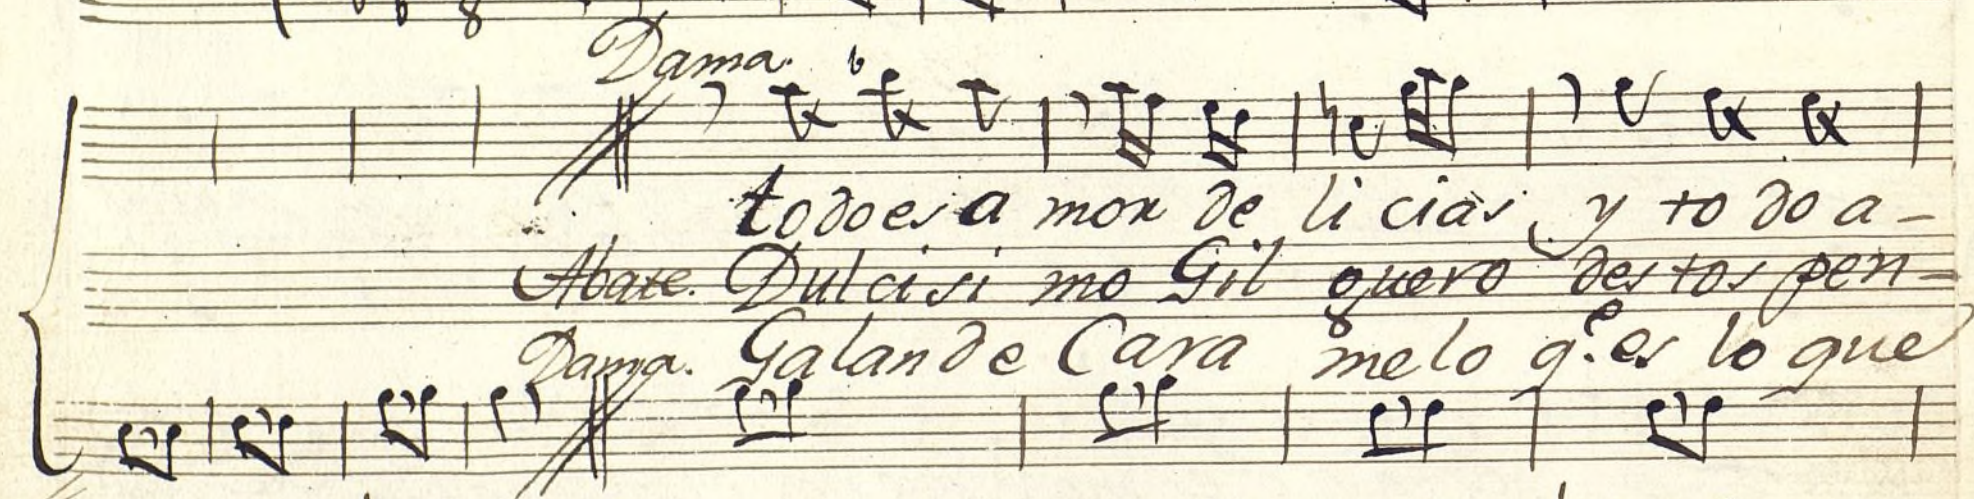 Dama.
todo es a mor de li cias y to do a-
Abate. Dulcisi mo Gil guero des tos pen-
Dama. Galan de Cara melo q.e es lo que